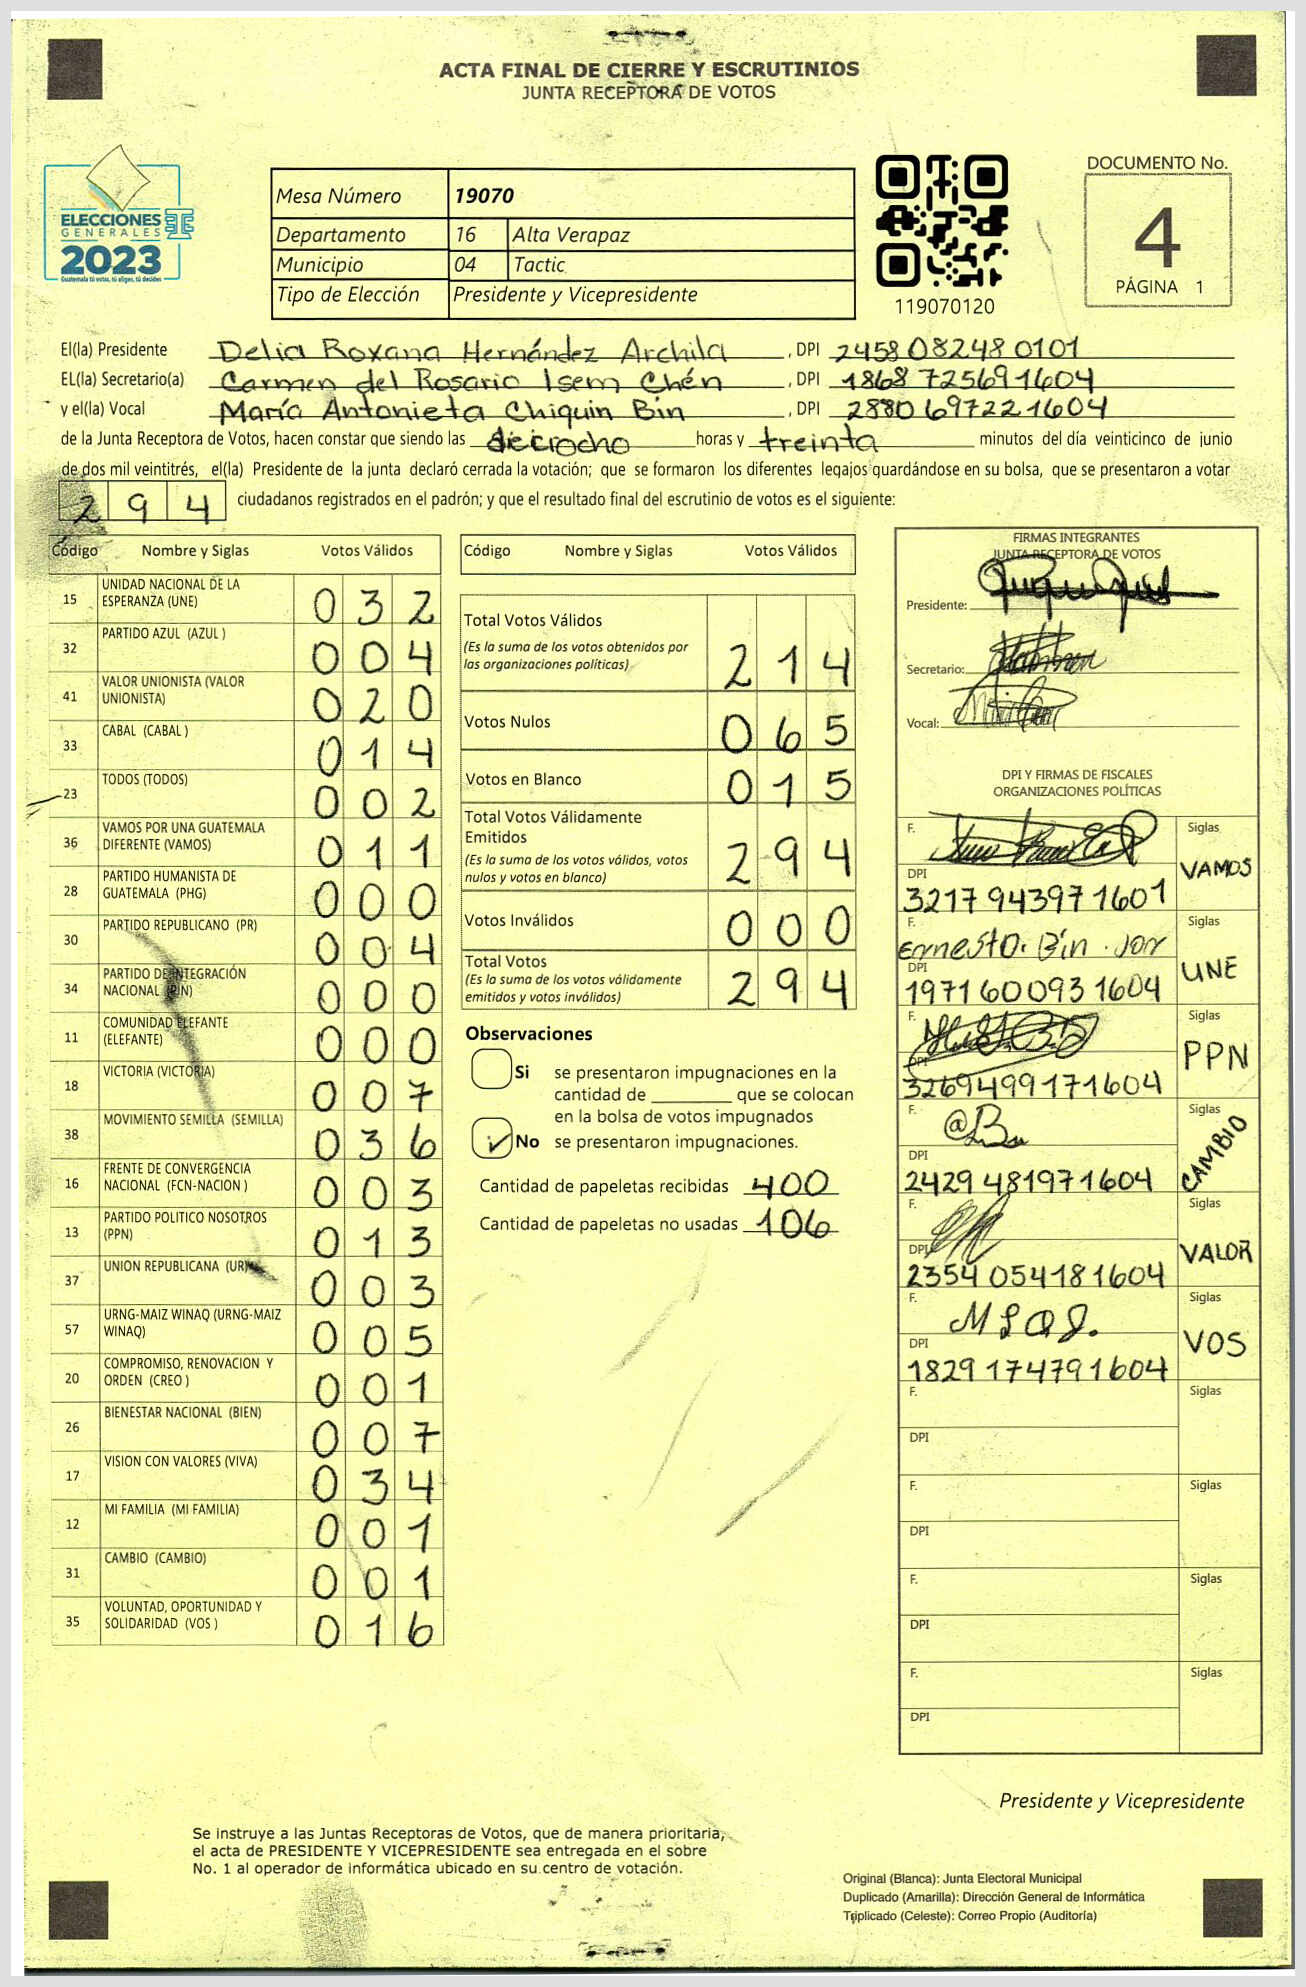 ACTA FINAL DE CIERRE Y ESCRUTINIOS
JUNTA RECEPTORA DE VOTOS
ELECCIONES
GENERALES
2023
Guatemala tú votas, tú eliges, tú decides
Mesa Número 19070
Departamento 16 Alta Verapaz
Municipio 04 Tactic
Tipo de Elección Presidente y Vicepresidente
119070120
DOCUMENTO No.
4
PÁGINA 1
El(la) Presidente Delia Roxana Hernández Archila, DPI 2458 08248 0101
EL(la) Secretario(a) Carmen del Rosario Isem Chén, DPI 1868 72569 1604
y el(la) Vocal María Antonieta Chiquin Bin, DPI 2880 69722 1604
de la Junta Receptora de Votos, hacen constar que siendo las dieciocho horas y treinta minutos del día veinticinco de junio
de dos mil veintitrés, el(la) Presidente de la junta declaró cerrada la votación; que se formaron los diferentes legajos guardándose en su bolsa, que se presentaron a votar
2 9 4 ciudadanos registrados en el padrón; y que el resultado final del escrutinio de votos es el siguiente:
Código Nombre y Siglas Votos Válidos
15 UNIDAD NACIONAL DE LA ESPERANZA (UNE) 0 3 2
32 PARTIDO AZUL (AZUL ) 0 0 4
41 VALOR UNIONISTA (VALOR UNIONISTA) 0 2 0
33 CABAL (CABAL ) 0 1 4
23 TODOS (TODOS) 0 0 2
36 VAMOS POR UNA GUATEMALA DIFERENTE (VAMOS) 0 1 1
28 PARTIDO HUMANISTA DE GUATEMALA (PHG) 0 0 0
30 PARTIDO REPUBLICANO (PR) 0 0 4
34 PARTIDO DE INTEGRACIÓN NACIONAL (PIN) 0 0 0
11 COMUNIDAD ELEFANTE (ELEFANTE) 0 0 0
18 VICTORIA (VICTORIA) 0 0 7
38 MOVIMIENTO SEMILLA (SEMILLA) 0 3 6
16 FRENTE DE CONVERGENCIA NACIONAL (FCN-NACION ) 0 0 3
13 PARTIDO POLITICO NOSOTROS (PPN) 0 1 3
37 UNION REPUBLICANA (UR) 0 0 3
57 URNG-MAIZ WINAQ (URNG-MAIZ WINAQ) 0 0 5
20 COMPROMISO, RENOVACION Y ORDEN (CREO ) 0 0 1
26 BIENESTAR NACIONAL (BIEN) 0 0 7
17 VISION CON VALORES (VIVA) 0 3 4
12 MI FAMILIA (MI FAMILIA) 0 0 1
31 CAMBIO (CAMBIO) 0 0 1
35 VOLUNTAD, OPORTUNIDAD Y SOLIDARIDAD (VOS ) 0 1 6
Código Nombre y Siglas Votos Válidos
Total Votos Válidos
(Es la suma de los votos obtenidos por las organizaciones políticas) 2 1 4
Votos Nulos 0 6 5
Votos en Blanco 0 1 5
Total Votos Válidamente Emitidos
(Es la suma de los votos válidos, votos nulos y votos en blanco) 2 9 4
Votos Inválidos 0 0 0
Total Votos
(Es la suma de los votos válidamente emitidos y votos inválidos) 2 9 4
Observaciones
Si se presentaron impugnaciones en la
cantidad de ________ que se colocan
en la bolsa de votos impugnados
No se presentaron impugnaciones.
Cantidad de papeletas recibidas 400
Cantidad de papeletas no usadas 106
FIRMAS INTEGRANTES
JUNTA RECEPTORA DE VOTOS
Presidente:
Secretario:
Vocal:
DPI Y FIRMAS DE FISCALES
ORGANIZACIONES POLÍTICAS
F. Siglas
VAMOS
DPI
3217 94397 1601
F. Ernesto. Bin . Siglas
UNE
DPI
1971 60093 1604
F. Siglas
PPN
DPI
3269499171604
F. Siglas
CAMBIO
DPI
2429 48197 1604
F. Siglas
VALOR
DPI
2354 05418 1604
F. Siglas
VOS
DPI
1829 17479 1604
F. Siglas
DPI
F. Siglas
DPI
F. Siglas
DPI
F. Siglas
DPI
Presidente y Vicepresidente
Se instruye a las Juntas Receptoras de Votos, que de manera prioritaria,
el acta de PRESIDENTE Y VICEPRESIDENTE sea entregada en el sobre
No. 1 al operador de informática ubicado en su centro de votación.
Original (Blanca): Junta Electoral Municipal
Duplicado (Amarilla): Dirección General de Informática
Triplicado (Celeste): Correo Propio (Auditoría)